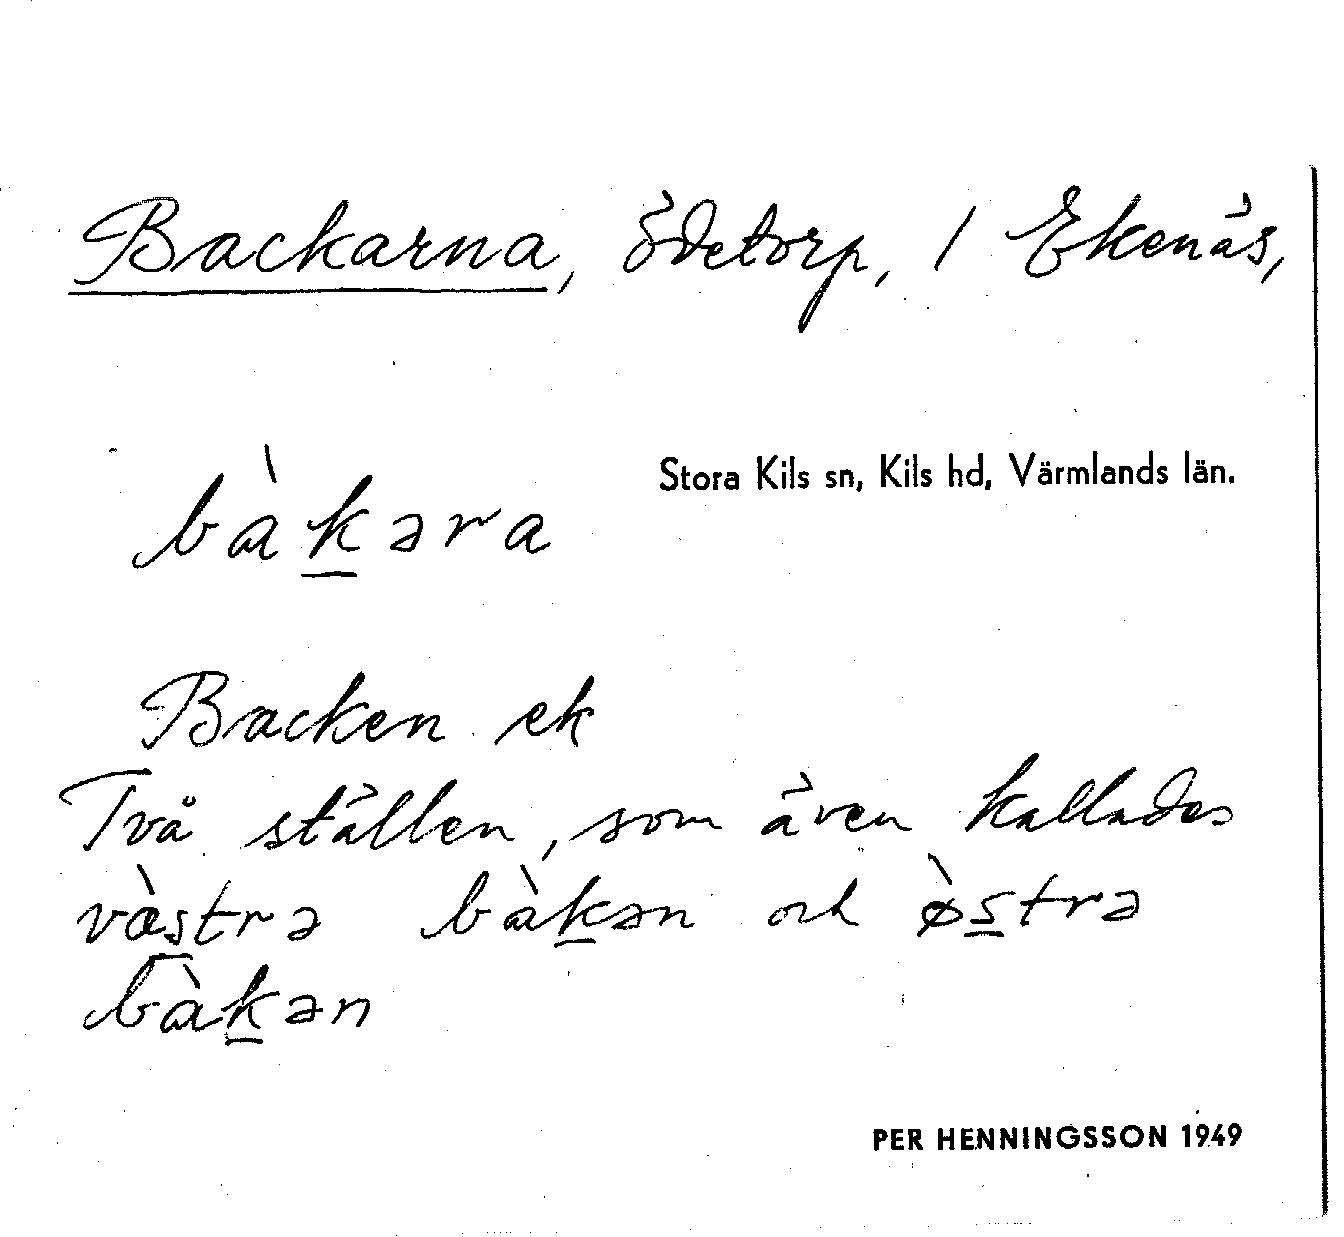 Backarna, ödetorp, / Ekenäs,
Stora Kils sn, Kils hd, Värmlands län.
bàk̲əra
Backen ek
Två ställen, som även kallades
væ̀s̲trə bàk̲ən och ø̀s̲trə
bàk̲ən
PER HENNINGSSON 1949